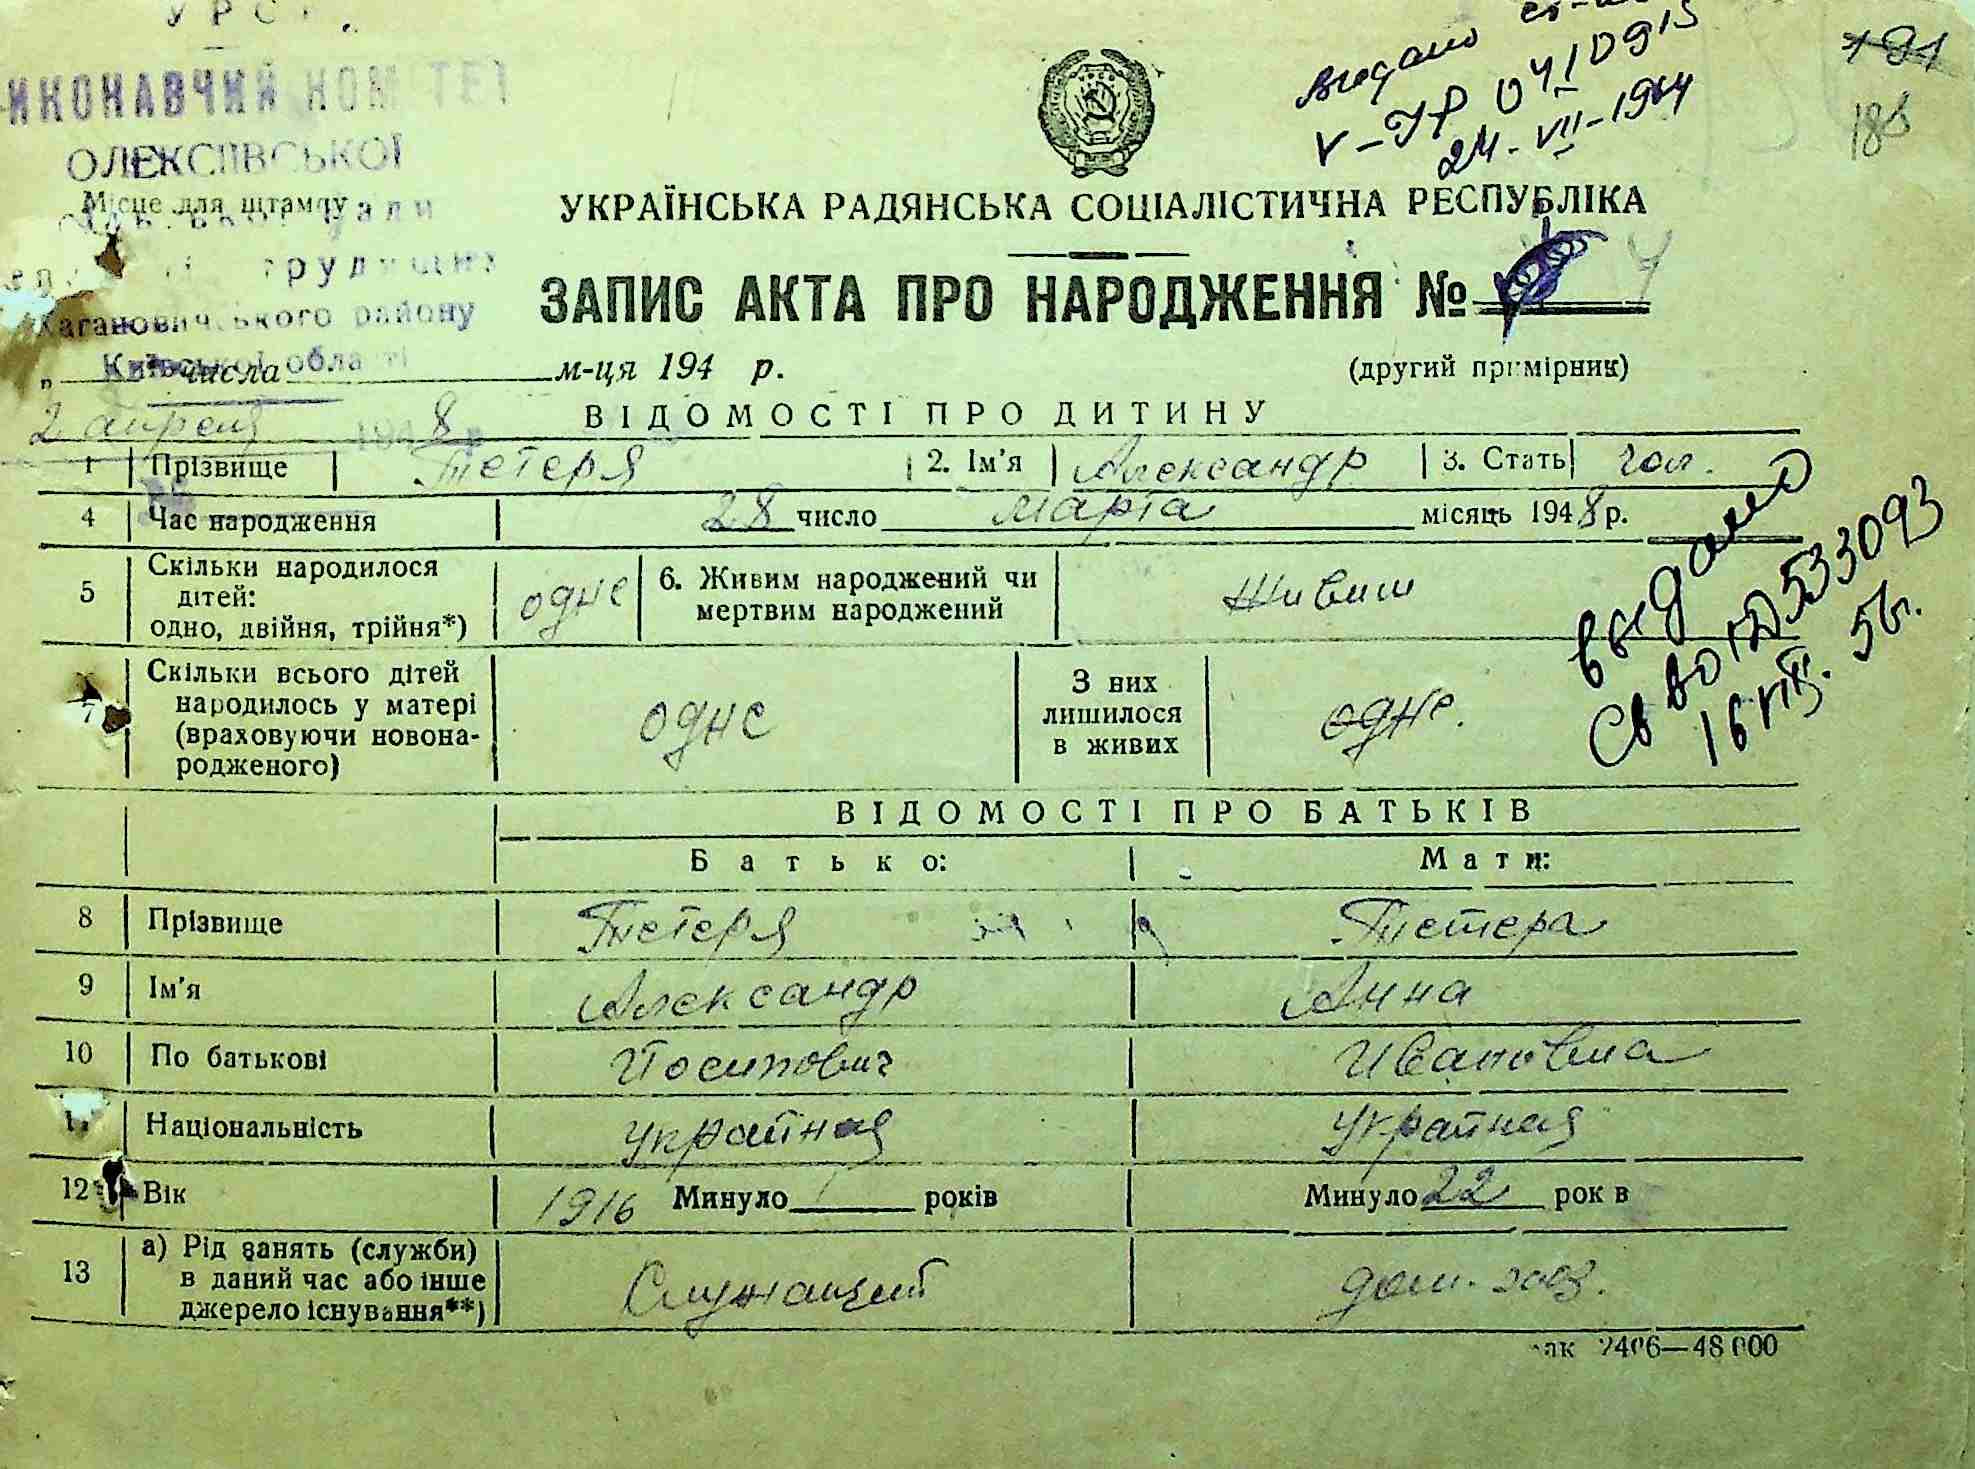 УРСР
ВИКОНАВЧИЙ КОМІТЕТ
ОЛЕКСІЇВСЬКОЇ
Місце для штампу
трудящих
Кагановичського району
Київської області
„ числа м-ця 194 р.
2 апреля 1948 р
выдано
V-УР 041091
24-VII-1964
191
188
УКРАЇНСЬКА РАДЯНСЬКА СОЦІАЛІСТИЧНА РЕСПУБЛІКА
ЗАПИС АКТА ПРО НАРОДЖЕННЯ № 4
(другий примірник)
ВІДОМОСТІ ПРО ДИТИНУ
1 Прізвище Тетеря 2. Ім'я Александр 3. Стать чол.
4 Час народження 28 число марта місяць 1948 р.
5 Скільки народилося дітей: одно, двійня, трійня*) одне 6. Живим народжений чи мертвим народжений живим
7 Скільки всього дітей народилось у матері (враховуючи новонародженого) одне З них лишилося в живих одне.
выдано
533093
16 VIII. 56г.
ВІДОМОСТІ ПРО БАТЬКІВ
Батько: Мати:
8 Прізвище Тетеря Тетера
9 Ім'я Александр Анна
10 По батькові Йосипович Ивановна
11 Національність
12 Вік 1916 Минуло років Минуло 22 років
13 а) Рід занять (служби) в даний час або інше джерело існування**) Служащий дом. хоз.
Зак 2406—48 000